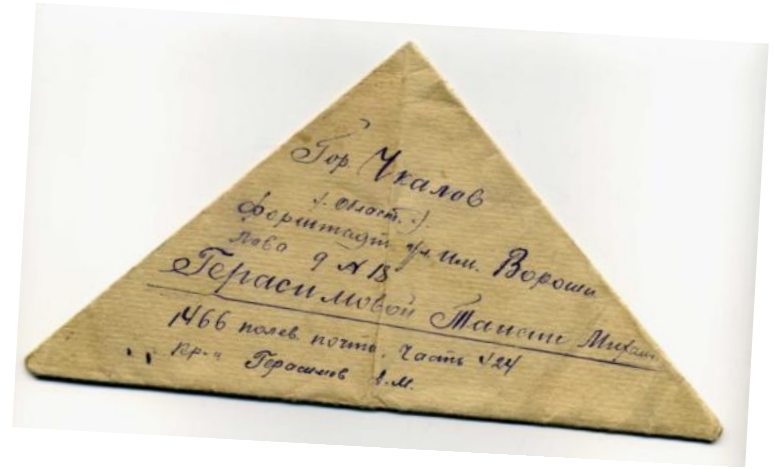 Гор. Чкалов
(. Област. .)
Форштадт ул. им. Вороши
лова 9 А 18
Герасимовой Таисии Михаил
1466 полев. почта. Часть 424
Кр-ц Герасимов А.М.